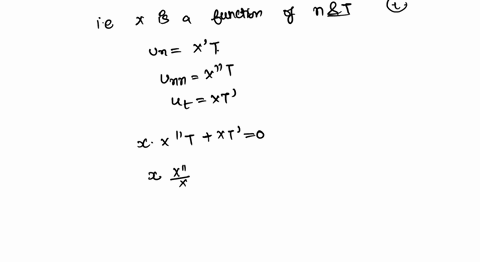 i.e x is a function of n & T (t)
un = x'T
unn = x"T
ut = xT'
x. x"T + xT' = 0
x x"/x